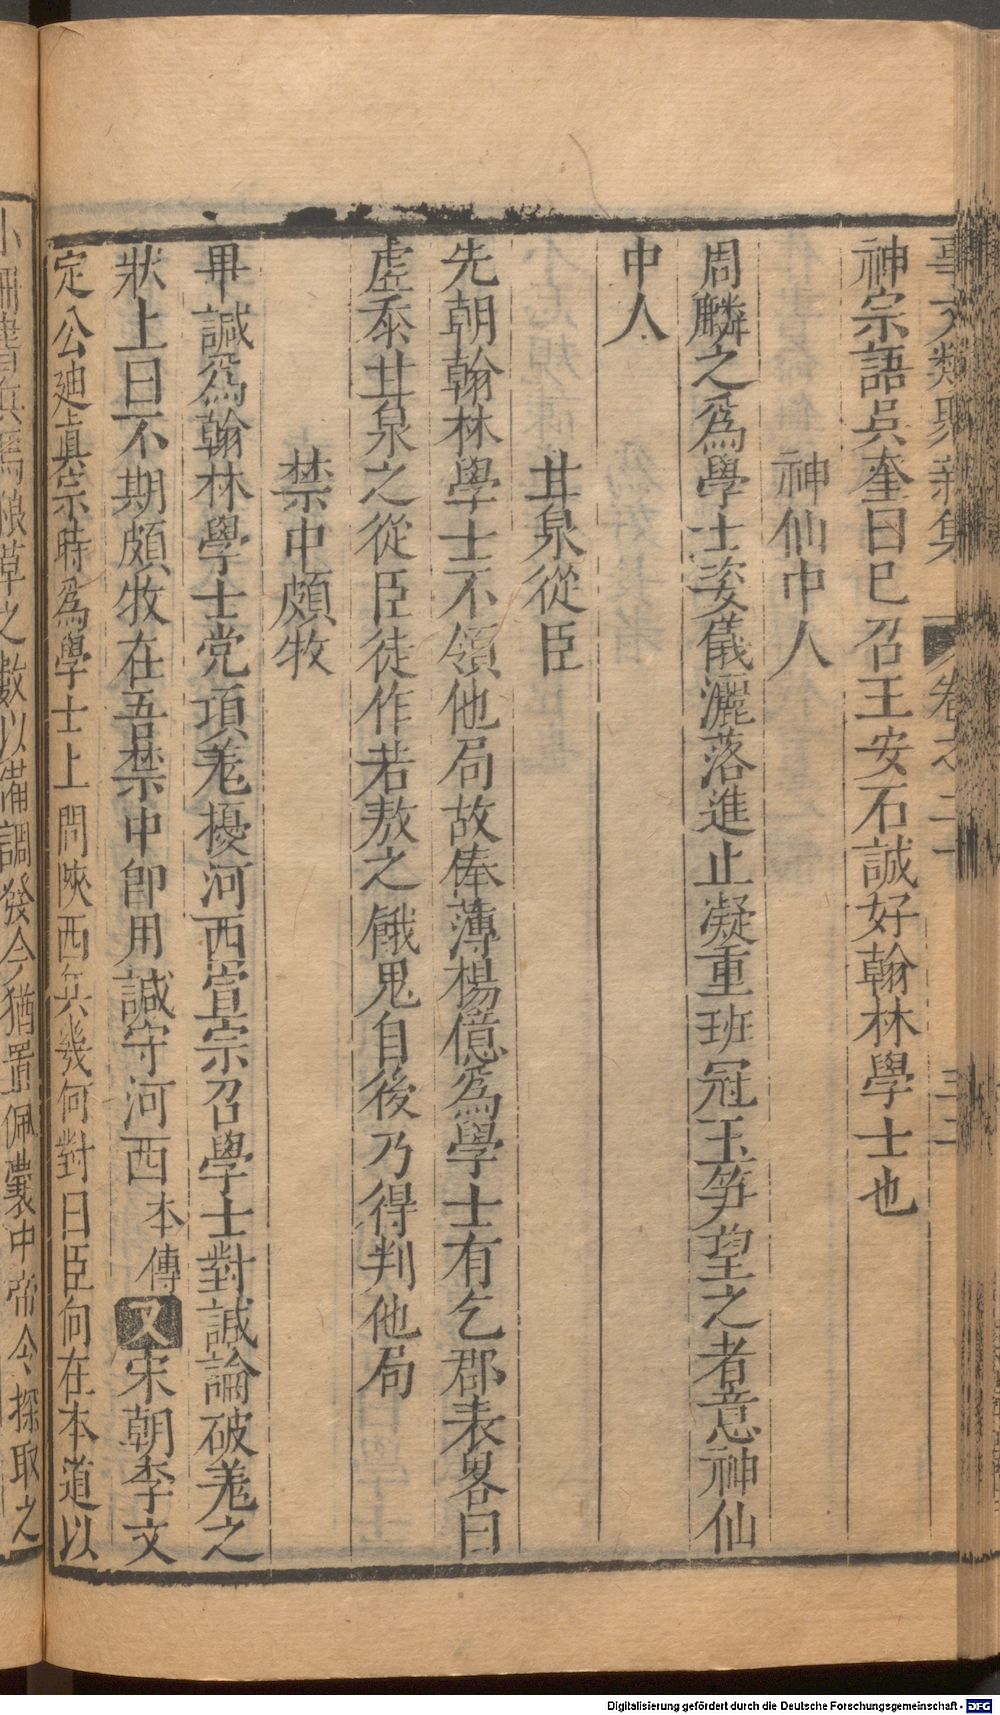 事文類聚新集　卷之二十　三二
神宗語吳奎曰巳召王安石誠好翰林學士也
神仙中人
周麟之爲學士姿儀灑落進止凝重班冠玉笋望之者意神仙
中人
甘泉從臣
先朝翰林學士不領他局故俸薄楊億爲學士有乞郡表畧曰
虗忝甘泉之從臣徒作若敖之餓鬼自後乃得判他局
禁中頗牧
畢諴爲翰林學士党項羗擾河西宣宗召學士對諴論破羗之
狀上曰不期頗牧在吾禁中卽用諴守河西本傳又宋朝李文
定公廸眞宗時爲學士上問陜西兵幾何對曰臣向在本道以
小冊書兵馬粮草之數以備調發今猶置佩囊中帝令探取之
Digitalisierung gefördert durch die Deutsche Forschungsgemeinschaft - DFG